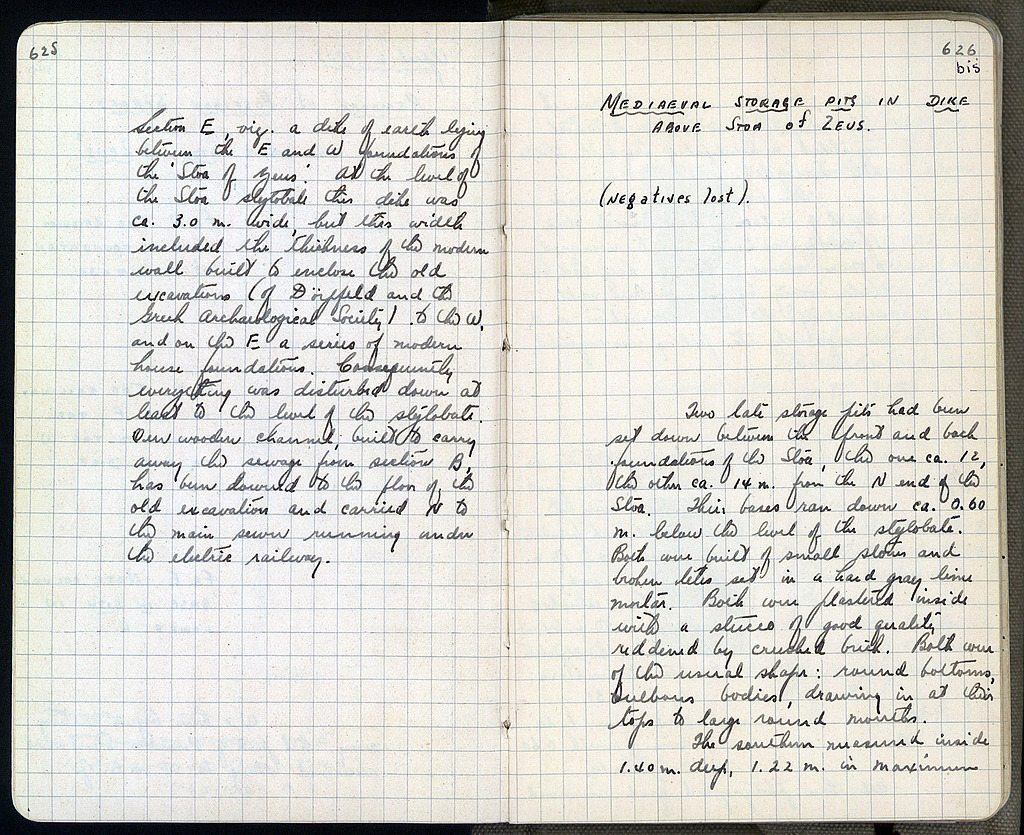 625
Section E, viz. a dike of earth lying
between the E and W foundations of
the 'Stoa of Zeus'. At the level of
the Stoa stylobate this dike was
ca. 3.0 m. wide, but this width
included the thickness of the modern
wall built to enclose the old
excavations (of Dörpfeld and the
Greek Archaeological Society) to the W,
and on the E a series of modern
house foundations. Consequently
everything was disturbed down at
least to the level of the stylobate.
Our wooden channel, built to carry
away the sewage from section B,
has been lowered to the floor of the
old excavation and carried N to
the main sewer running under
the electric railway.
626
bis
MEDIAEVAL STORAGE PITS IN DIKE
ABOVE STOA of ZEUS.
(Negatives lost).
Two late storage pits had been
set down between the front and back
foundations of the Stoa, the one ca. 12,
the other ca. 14 m. from the N end of the
Stoa. Their bases ran down ca. 0.60
m. below the level of the stylobate.
Both were built of small stones and
broken tiles set in a hard gray lime
mortar. Both were plastered inside
with a stucco of good quality
reddened by crushed brick. Both were
of the usual shape: round bottoms,
bulbous bodies, drawing in at their
tops to large round mouths.
The southern measured inside
1.40 m. deep, 1.22 m. in maximum